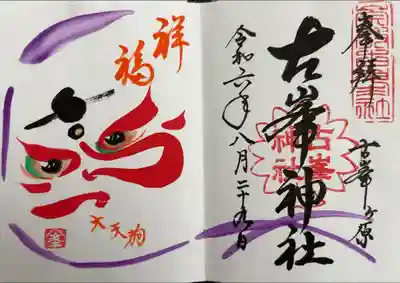 奉拝
古峯ヶ原
古峯神社
令和六年八月二十九日
古峯神社
祥福
大天狗